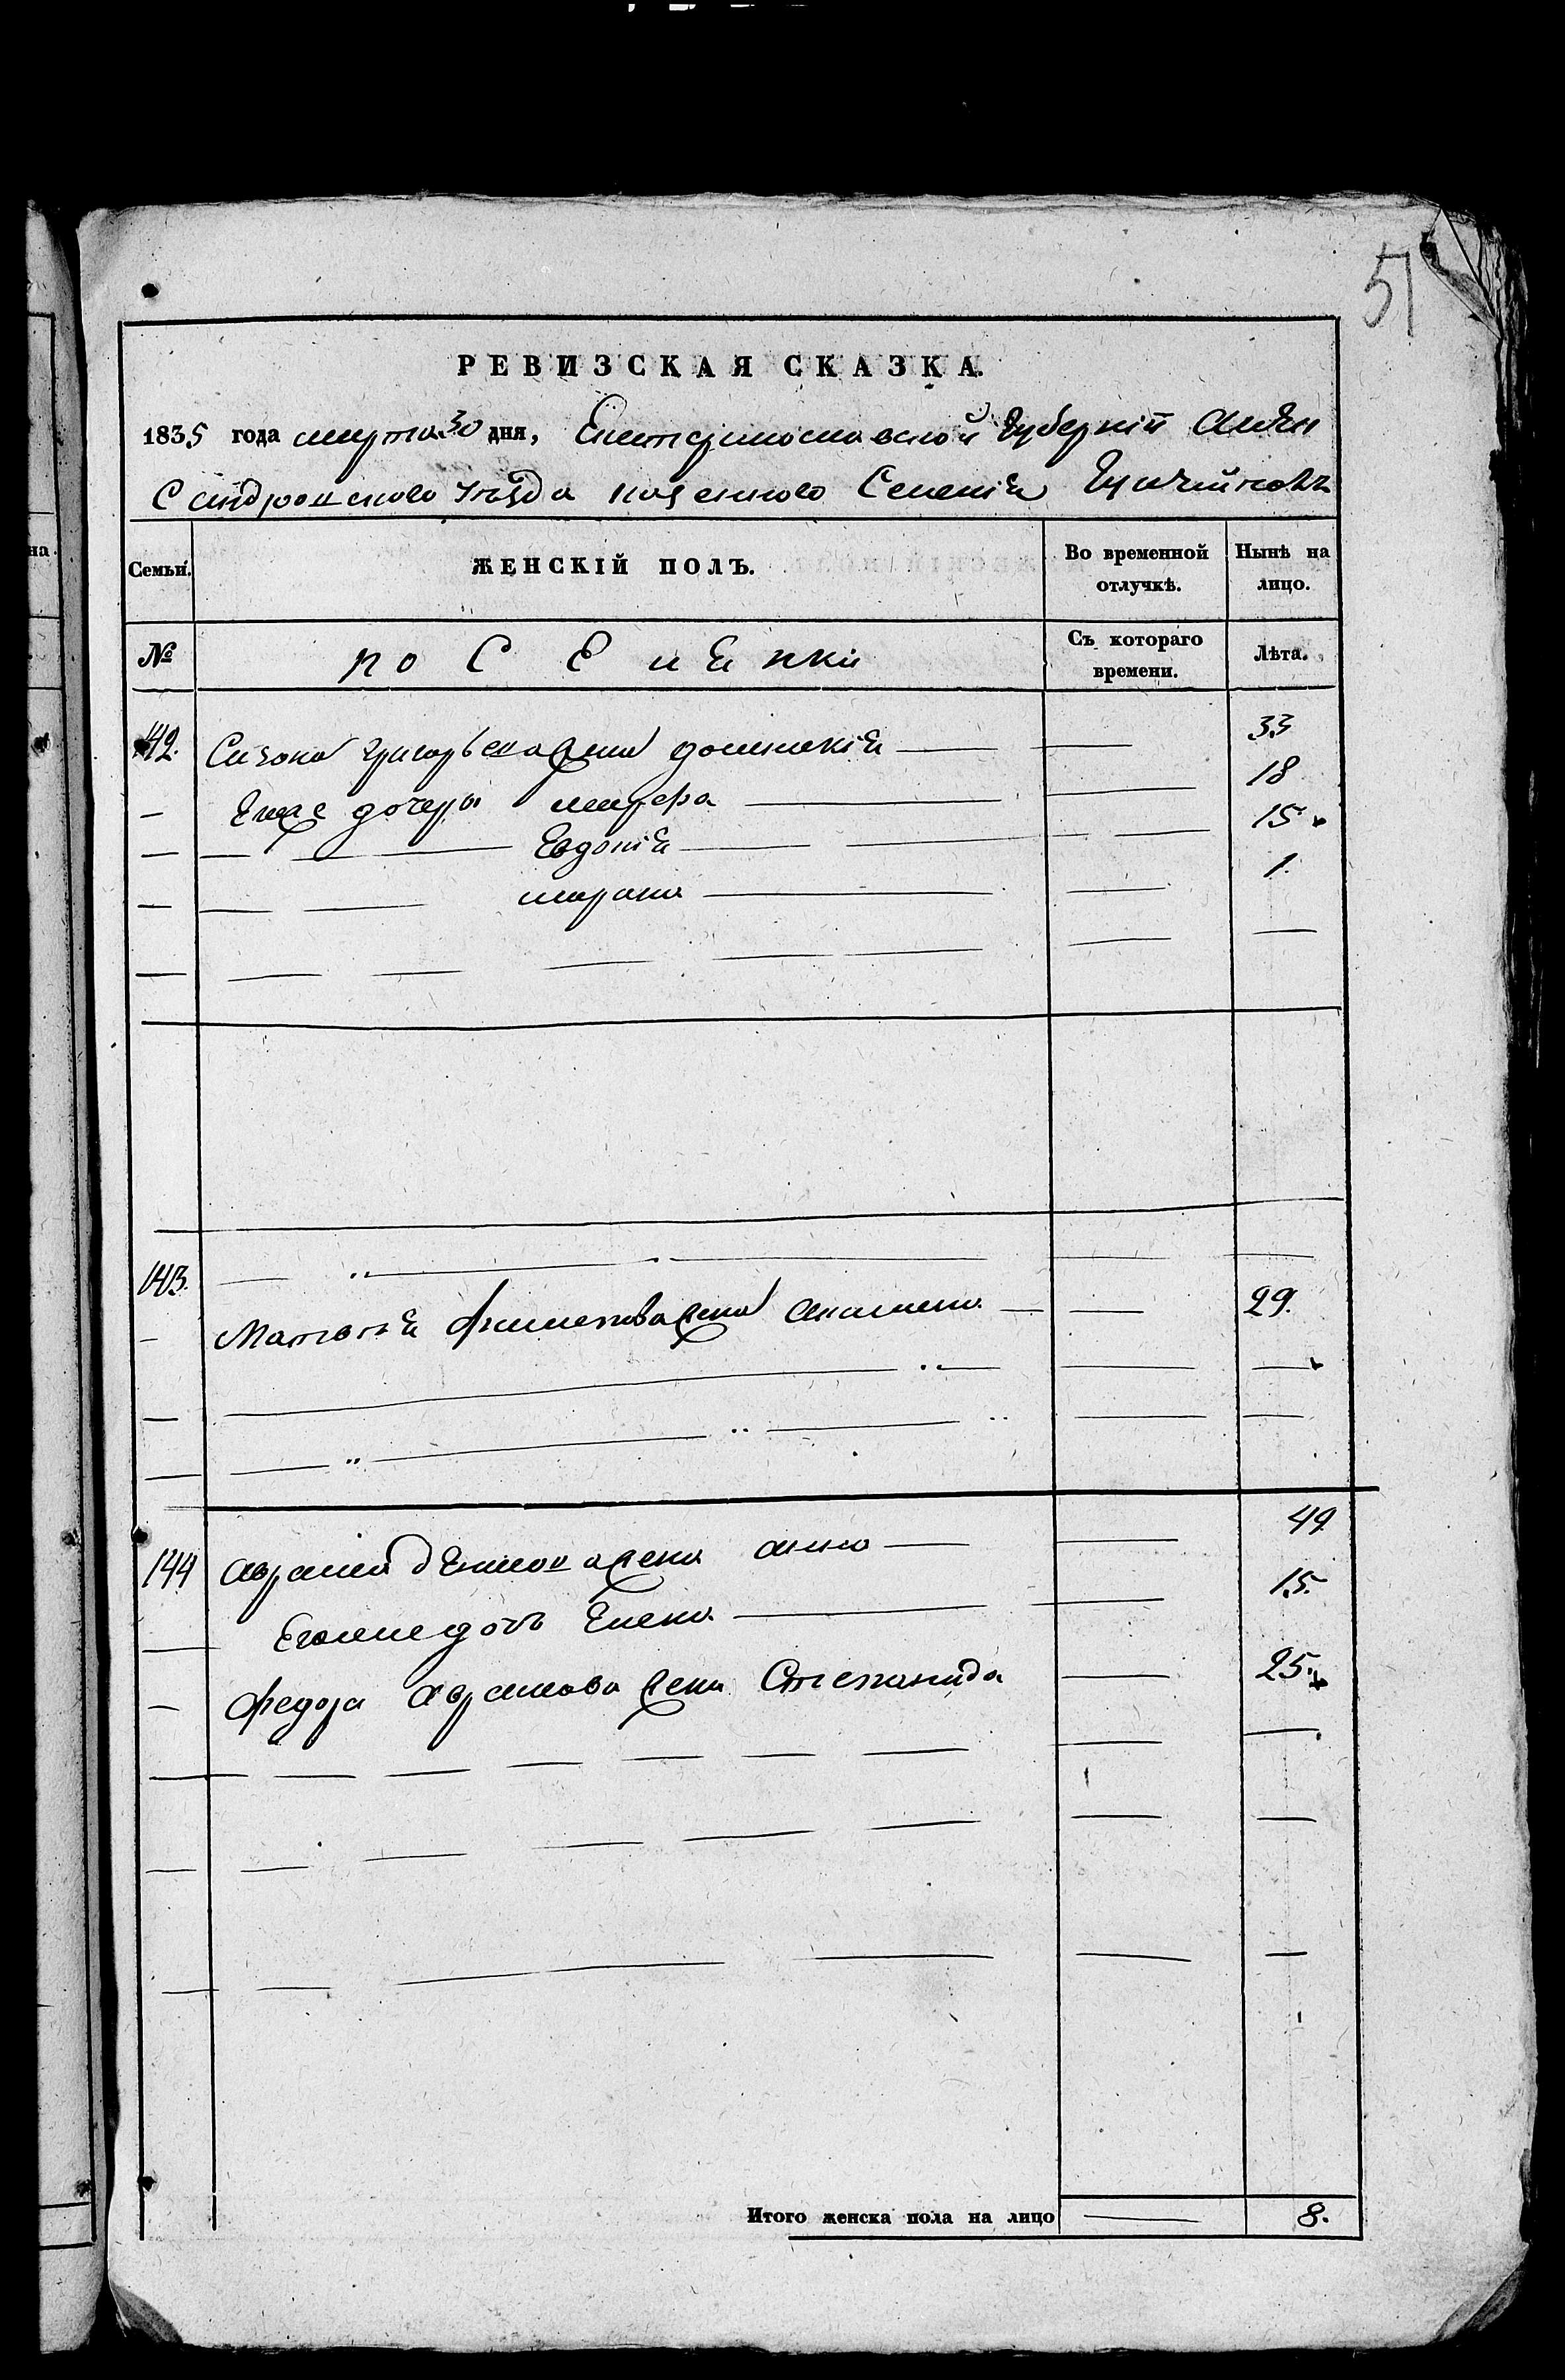 51
РЕВИЗСКАЯ СКАЗКА.
1835 года марта 30 дня, Екатеринославской Губернїи Алек
Сандровского уезда казенного Селенія
на.
Семьи. ЖЕНСКІЙ ПОЛЪ. Во временной отлучкѣ. Нынѣ на лицо.
№ поСЕ Съ котораго времени. Лѣта.
142. Сизона григорьева жена домникія 33
Его же дочеры марфа 18
Евдокія 15
марина 1.
143.
Матвея Филипова жена 29.
144 аврама жена анна 49
Его же дочь Елена 15.
Федора Аврамова жена Степанида 25.
Итого женска пола на лицо 8.